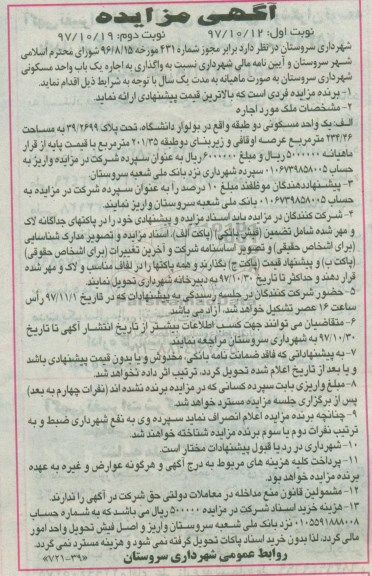 آگهی مزایده
نوبت اول: ۹۷/۱۰/۱۲ نوبت دوم: ۹۷/۱۰/۱۹
شهرداری سروستان در نظر دارد برابر مجوز شماره ۴۳۱ مورخه ۹۶/۸/۱۵ شورای محترم اسلامی
شهر سروستان و آیین نامه مالی شهرداری نسبت به واگذاری به اجاره یک باب واحد مسکونی
شهرداری سروستان به صورت ماهیانه به مدت یک سال با توجه به شرایط ذیل اقدام نماید.
۱- برنده مزایده فردی است که بالاترین قیمت پیشنهادی ارائه نماید.
۲- مشخصات ملک مورد اجاره
الف: یک واحد مسکونی دو طبقه واقع در بولوار دانشگاه تحت پلاک ۳۹/۲۶۹۹ به مساحت
۲۳۴/۴۶ مترمربع عرصه اوقافی و زیربنای دو طبقه ۲۰۱/۳۵ مترمربع با قیمت پایه از قرار
ماهیانه ۵۰۰۰۰۰۰ ریال و مبلغ ۶۰۰۰۰۰۰ ریال به عنوان سپرده شرکت در مزایده واریز به
حساب ۰۱۰۶۷۳۹۸۵۸۰۰۵ سپرده شهرداری نزد بانک ملی شعبه سروستان
۳- پیشنهاددهندگان موظفند مبلغ ۱۰ درصد را به عنوان سپرده شرکت در مزایده به
حساب ۰۱۰۶۷۳۹۸۵۸۰۰۵ بانک ملی شعبه سروستان واریز نمایند.
۴- شرکت کنندگان در مزایده باید اسناد مزایده و پیشنهادی خود را در پاکتهای جداگانه لاک
و مهر شده شامل تضمین (فیش بانکی) (پاکت الف)، اسناد مزایده و تصویر مدارک شناسایی
(برای اشخاص حقیقی) و تصویر اساسنامه شرکت و آخرین تغییرات (برای اشخاص حقوقی)
(پاکت ب) و پیشنهاد قیمت (پاکت ج) بگذارند و همه پاکتها را در لفاف مناسب و لاک و مهر شده
قرار دهند و حداکثر تا تاریخ ۹۷/۱۰/۳۰ به دبیرخانه شهرداری تحویل نمایند.
۵- حضور شرکت کنندگان در جلسه رسیدگی به پیشنهادات که در تاریخ ۹۷/۱۱/۱ رأس
ساعت ۱۶ عصر تشکیل خواهد شد، آزاد می باشد.
۶- متقاضیان می توانند جهت کسب اطلاعات بیشتر از تاریخ انتشار آگهی تا تاریخ
۹۷/۱۰/۳۰ به شهرداری سروستان مراجعه نمایند.
۷- به پیشنهاداتی که فاقد ضمانت نامه بانکی، مخدوش و یا بدون قیمت پیشنهادی باشد
و یا بعد از تاریخ اعلام شده تحویل گردد، ترتیب اثر داده نخواهد شد.
۸- مبلغ واریزی بابت سپرده کسانی که در مزایده برنده نشده اند (نفرات چهارم به بعد)
پس از برگزاری جلسه مزایده مسترد خواهد شد.
۹- چنانچه برنده مزایده اعلام انصراف نماید سپرده وی به نفع شهرداری ضبط و به
ترتیب نفرات دوم یا سوم برنده مزایده شناخته خواهند شد.
۱۰- شهرداری در رد یا قبول پیشنهادات مختار است.
۱۱- پرداخت کلیه هزینه های مربوط به درج آگهی و هرگونه عوارض و غیره به عهده
برنده مزایده خواهد بود.
۱۲- مشمولین قانون منع مداخله در معاملات دولتی حق شرکت در آگهی را ندارند.
۱۳- هزینه خرید اسناد شرکت در مزایده ۵۰۰۰۰۰ ریال می باشد که به شماره حساب
۰۱۰۵۵۹۱۸۸۰۰۸ نزد بانک ملی شعبه سروستان واریز و اصل فیش تحویل واحد امور
مالی گردد. لذا بدون خرید اسناد پاکات تحویل گرفته نمی شود و هزینه مسترد نمی گردد.
روابط عمومی شهرداری سروستان «۷۲۱-۳۹»